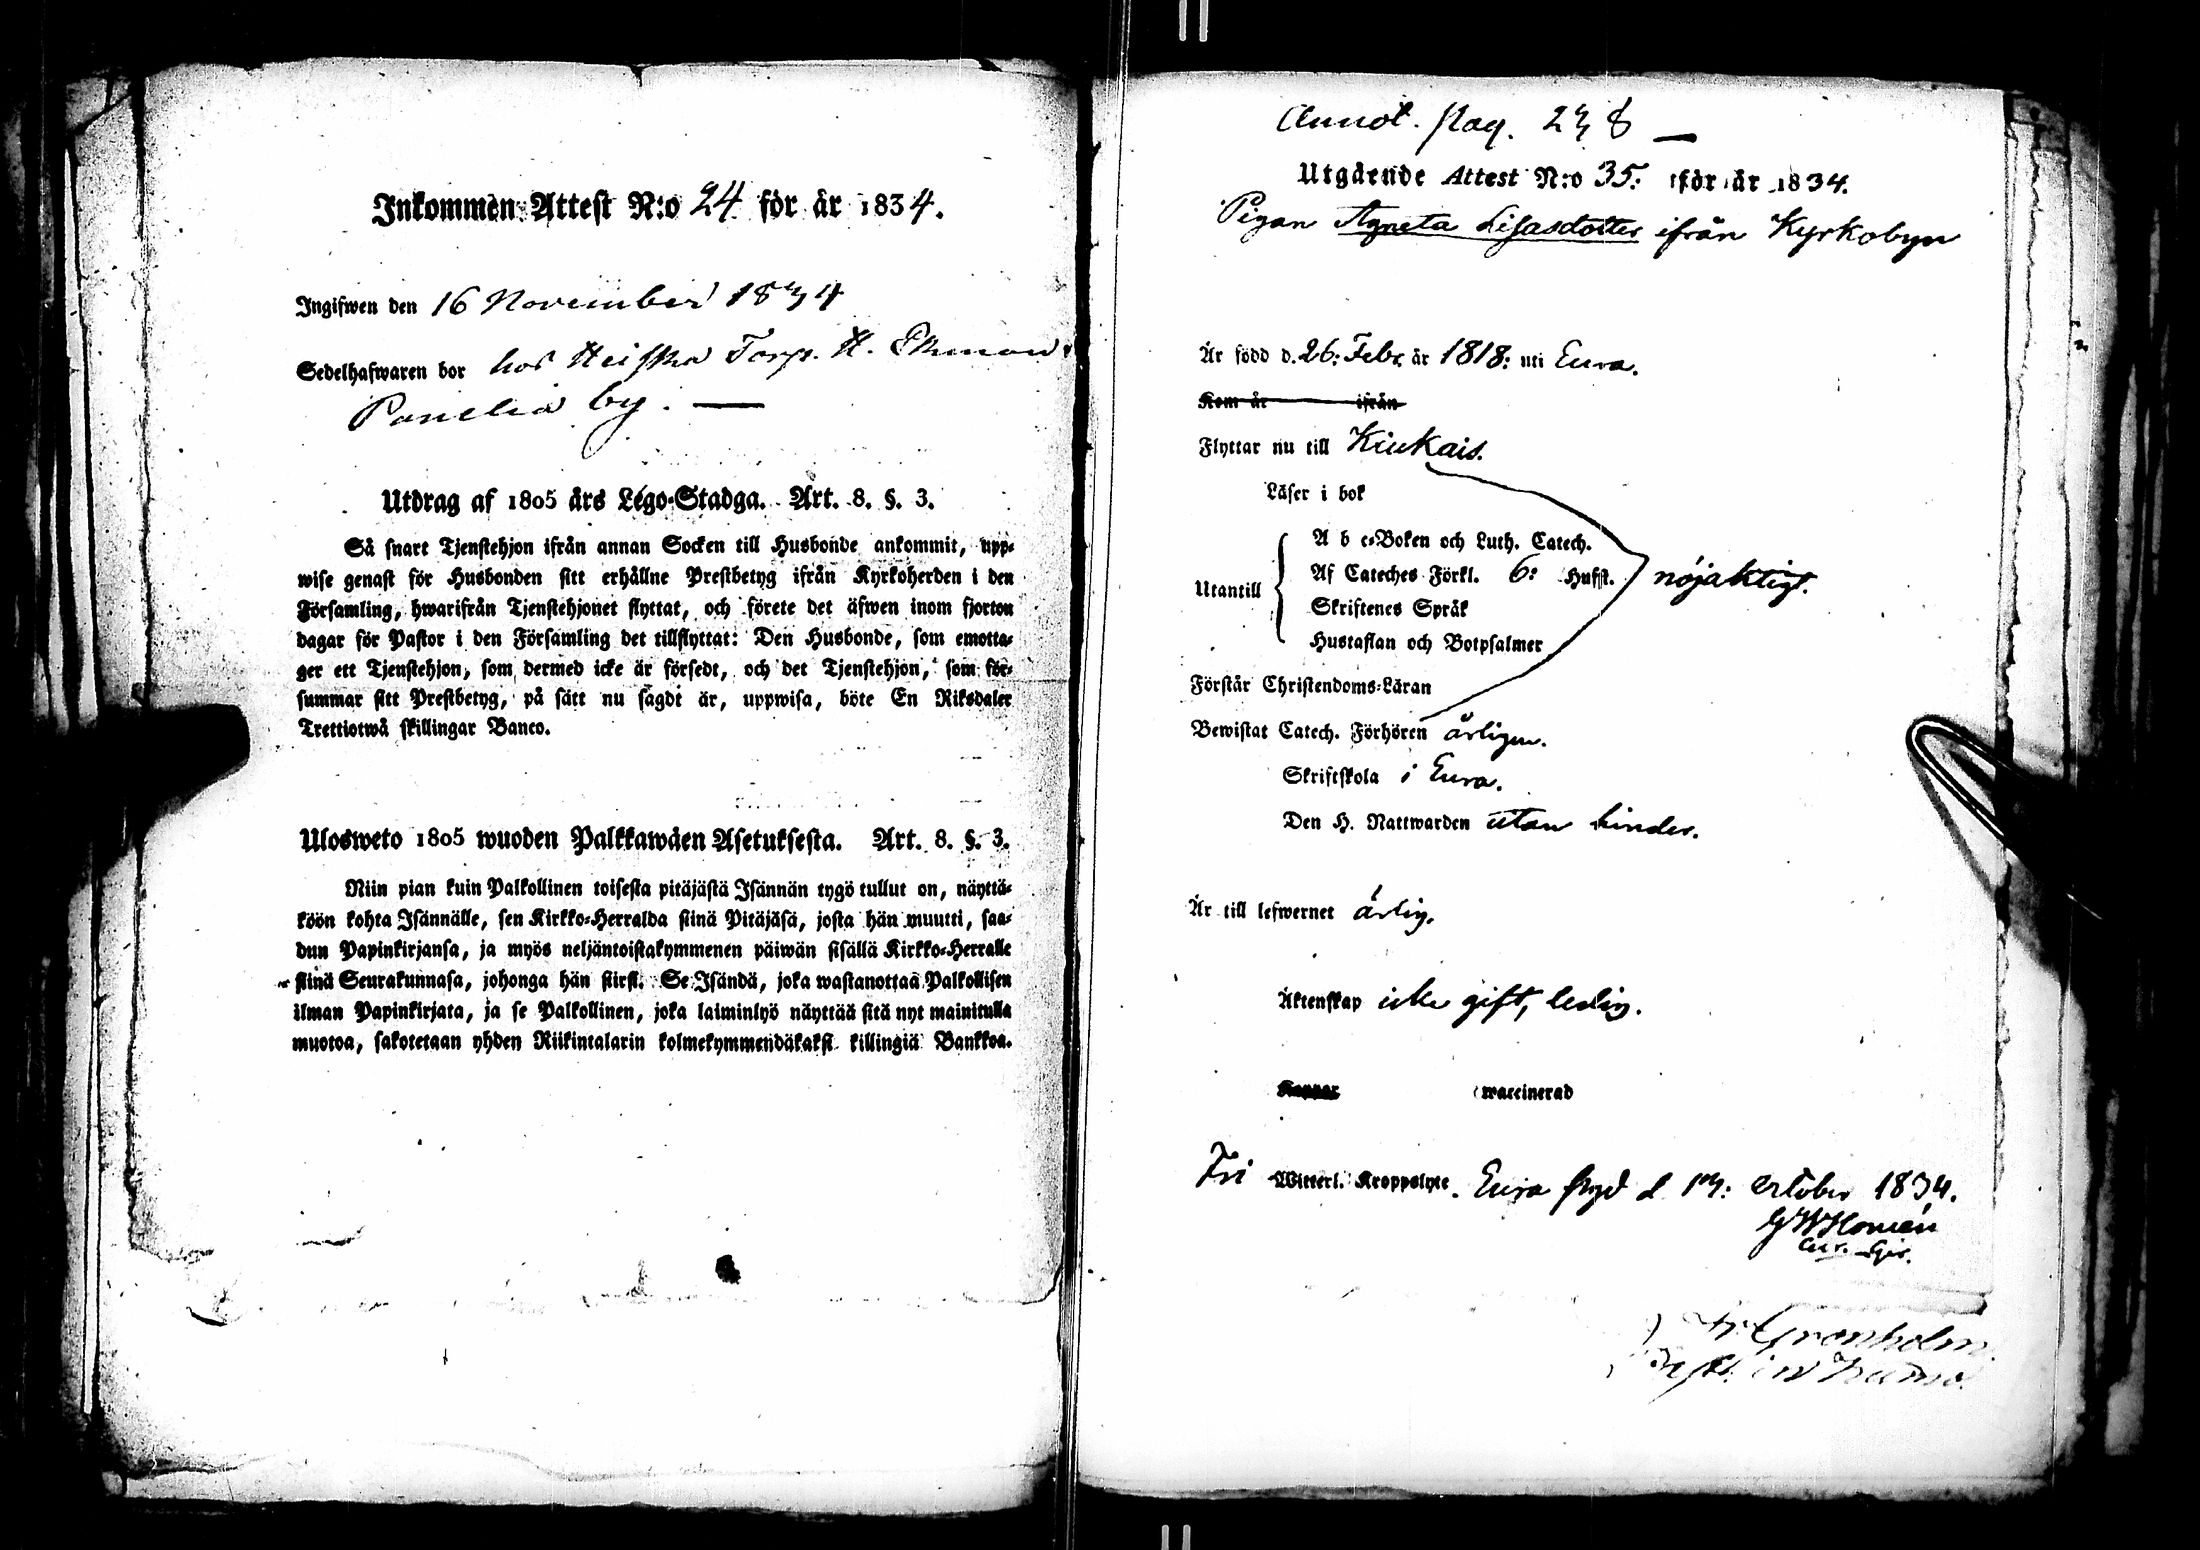 Inkommen Attest N:o 24 för år 1834.
Ingifwen den 16 November 1834
Sedelhafwaren bor hos Heiska Torp. H. Ekman
Panelia by. —
Utdrag af 1805 års Lego-Stadga. Art. 8. §. 3.
Så snart Tjenstehjon ifrån annan Socken till Husbonde ankommit, upp-
wise genast för Husbonden sitt erhållne Prestbetyg ifrån Kyrkoherden i den
Församling, hwarifrån Tjenstehjonet flyttat, och förete det äfwen inom fjorton
dagar för Pastor i den Församling det tillflyttat: Den Husbonde, som emotta-
ger ett Tjenstehjon, som dermed icke är försedt, och det Tjenstehjon, som för-
summar sitt Prestbetyg, på sätt nu sagdt är, uppwisa, böte En Riksdaler
Trettiotwå skillingar Banco.
Ulosweto 1805 wuoden Palkkawäen Asetuksesta. Art. 8. §. 3.
Niin pian kuin Palkollinen toisesta pitäjästä Isännän tygö tullut on, näyttä-
köön kohta Isännälle, sen Kirkko-Herralda siinä Pitäjäsä, josta hän muutti, saa-
dun Papinkirjansa, ja myös neljäntoistakymmenen päiwän sisällä Kirkko-Herralle
siinä Seurakunnasa, johonga hän siirsi. Se Isändä, joka wastanottaa Palkollisen
ilman Papinkirjata, ja se Palkollinen, joka laiminlyö näyttää sitä nyt mainitulla
muotoa, sakotetaan yhden Riikintalarin kolmekymmendäkaksi killingiä Bankkoa.
Annot. pag. 238 —
Utgående Attest N:o 35. för år 1834.
Pigan Agneta Lisasdotter ifrån Kyrkobyn
Är född d. 26: Febr. år 1818: uti Eura.
Kom år ifrån
Flyttar nu till Kiukais.
Läser i bok
A b c-Boken och Luth. Catech.
Af Cateches Förkl. 6: Hufst.
Utantill
nöjaktigt.
Skriftenes Språk
Hustaflan och Botpsalmer
Förstår Christendoms-Läran
Bewistat Catech. Förhören årligen.
Skriftskola i Eura.
Den H. Nattwarden utan hinder.
Är till lefwernet ärlig.
Äktenskap icke gift, ledig.
Koppor waccinerad
Fri Witterl. Kroppslyte. Eura pgd d 13: October 1834.
GWHomén
Grönholm